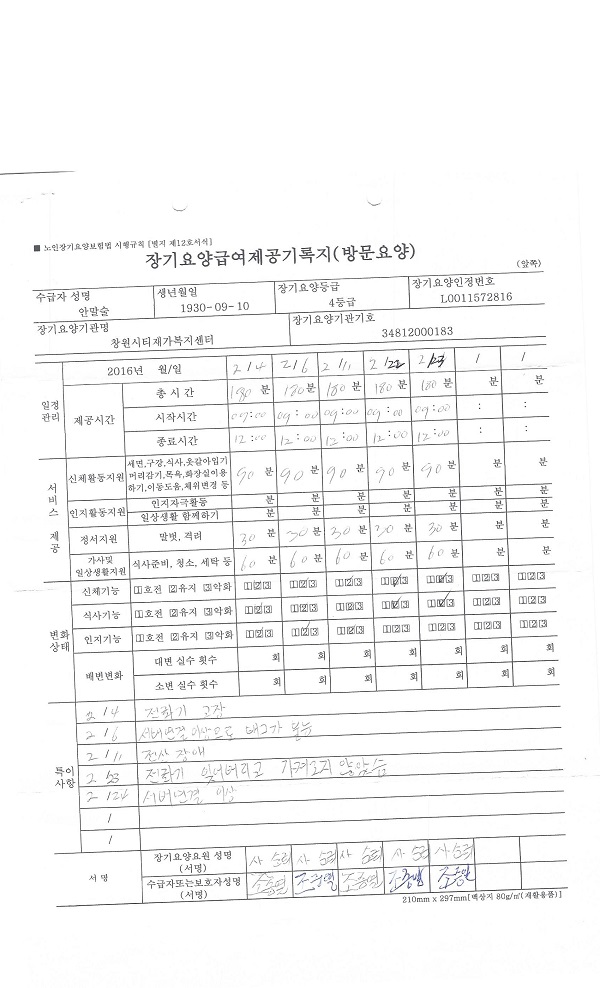 ■ 노인장기요양보험법 시행규칙 [별지 제12호서식]
장기요양급여제공기록지(방문요양)
(앞쪽)
수급자 성명 생년월일 장기요양등급 장기요양인정번호
안말술 1930-09-10 4등급 L0011572816
장기요양기관명 장기요양기관기호
창원시티재가복지센터 34812000183
2016년 월/일 2/4 2/6 2/11 2/22
일정관리 제공시간
총 시 간 180 분 180 분 180 분 180 분 180 분 분 분
시작시간 09:00 09:00 09:00 09:00 09:00 : :
종료시간 12:00 12:00 12:00 12:00 12:00 : :
서비스 제공
신체활동지원 세면,구강,식사,옷갈아입기 머리감기,목욕,화장실이용 하기,이동도움,체위변경 등 90 분 90 분 90 분 90 분 90 분 분 분
인지활동지원 인지자극활동 분 분 분 분 분 분 분
일상생활 함께하기 분 분 분 분 분 분 분
정서지원 말벗, 격려 30 분 30 분 30 분 30 분 30 분 분 분
가사및 일상생활지원 식사준비, 청소, 세탁 등 60 분 60 분 60 분 60 분 60 분 분 분
변화상태
신체기능 1호전 2유지 3악화 123 123 123 123 123 123 123
식사기능 1호전 2유지 3악화 123 123 123 123 123 123 123
인지기능 1호전 2유지 3악화 123 123 123 123 123 123 123
배변변화 대변 실수 횟수 회 회 회 회 회 회 회
소변 실수 횟수 회 회 회 회 회 회 회
특이사항
2/4 전화기 고장
2/6 서버연결이상으로 태그가
2/11 전산장애
전화기 잊어버리고 가져오지 않았슴
2/24 서버연결 이상
/
/
서 명
장기요양요원 성명 (서명)
수급자또는보호자성명 (서명)
210mm x 297mm[백상지 80g/㎡(재활용품)]